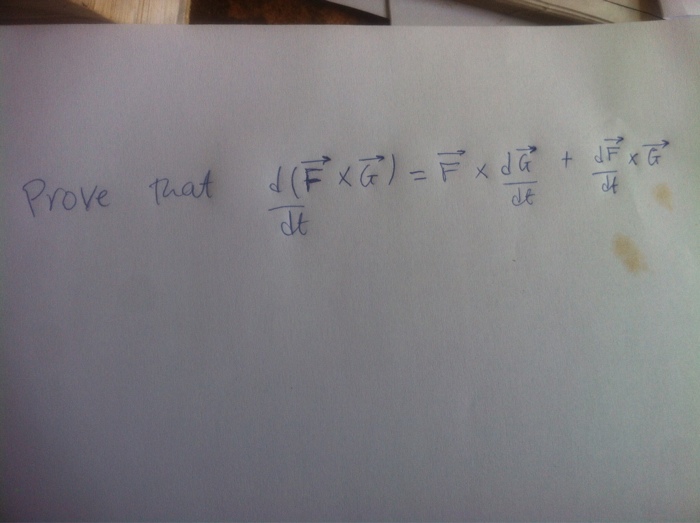 Prove that d(F⃗ × G⃗)/dt = F⃗ × dG⃗/dt + dF⃗/dt × G⃗